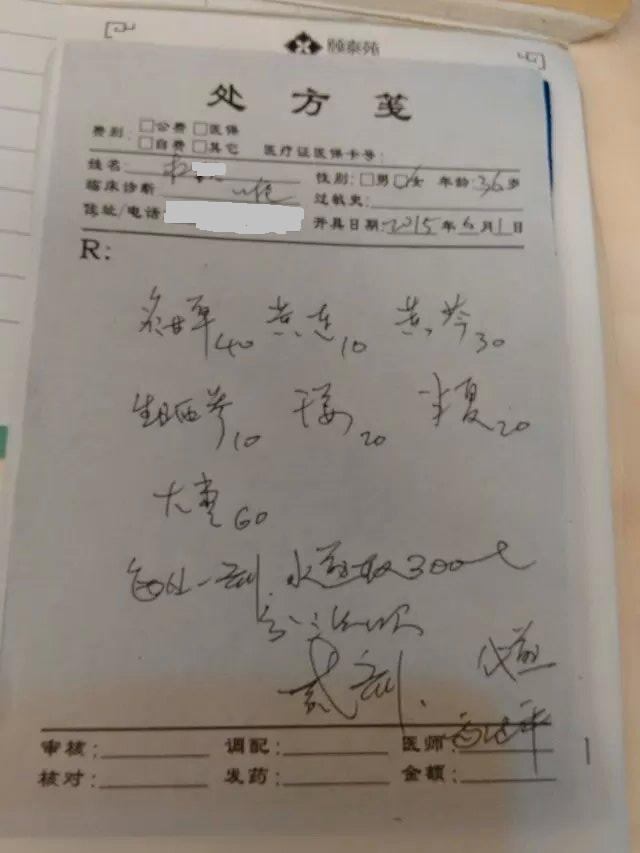 颐泰苑
处 方 笺
费别: □公费 □医保
□自费 □其它 医疗证医保卡号:
姓名: 性别:□男□女 年龄:36岁
临床诊断 过敏史:
住址/电话 开具日期:2015年6月1日
R:
炙甘草40 黄连10 黄芩30
生晒参10 干姜20 半夏20
大枣60
每处一剂,水煎取300ml
分三次温服
贰剂. 代煎
审核: 调配: 医师:
核对: 发药: 金额: